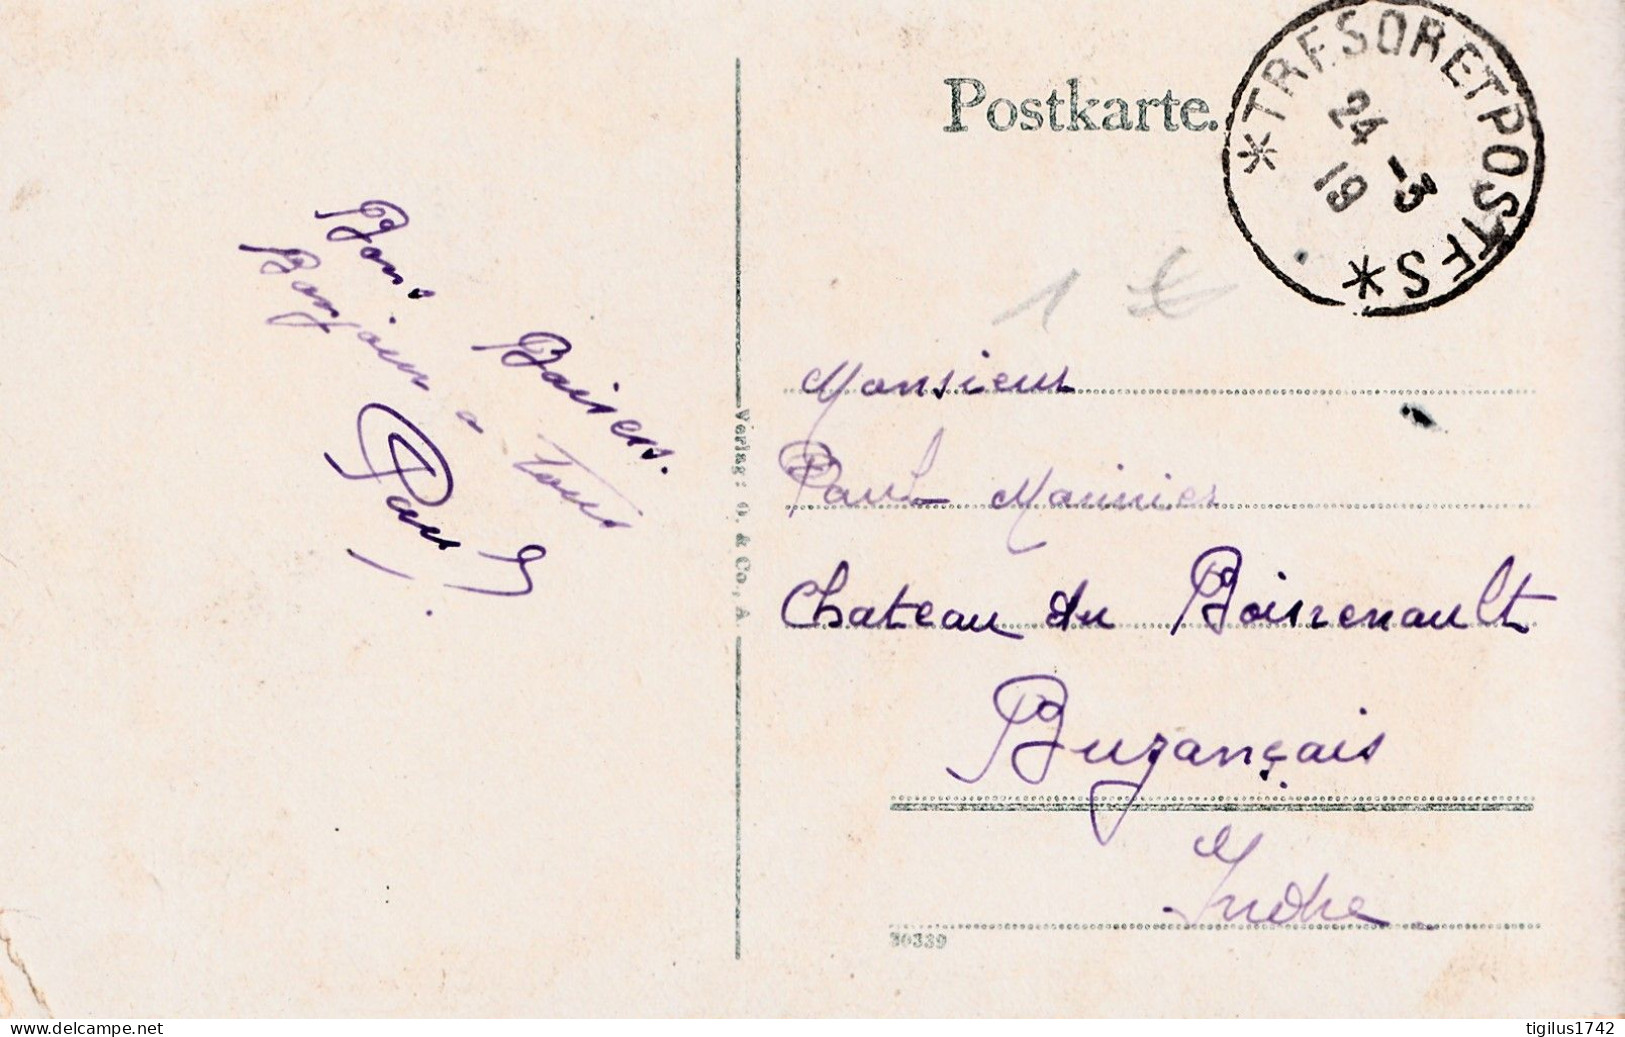 Postkarte.
*TRESOR ET POSTES*
24
-3
19
1 €
Bons Baisers.
Bonjour a tous
Paul
Monsieur
Paul Maunier
Chateau du Boisrenault
Buzançais
Indre
Verlag: O. & Co., A
30339
www.delcampe.net
tigilus1742